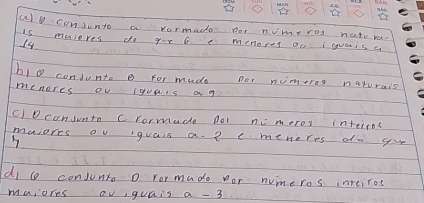 a) O conjunto a formado por números natura-
is maiores do que 6 e menores ou iguais a
14
b) O conjunto B formado por números naturais
menores ou iguais a 9
c) O conjunto C formado por números inteiros
maiores ou iguais a -2 e menores do que
7
d) O conjunto D formado por números inteiros
maiores ou iguais a -3.